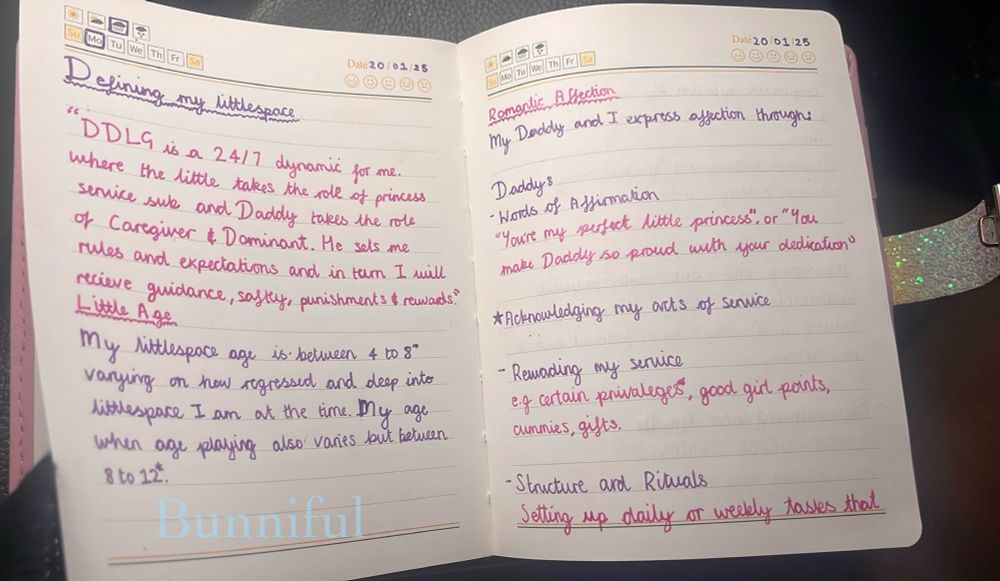 Su Mo Tu We Th Fr Sa
Date 20/01/25
Defining my littlespace
"DDLG is a 24/7 dynamic for me.
where the little takes the role of princess
service sub and Daddy takes the role
of Caregiver & Dominant. He sets me
rules and expectations and in turn I will
recieve guidance, safty, punishments & rewards."
Little Age
My littlespace age is between 4 to 8*
varying on how regressed and deep into
littlespace I am at the time. My age
when age playing also varies but between
8 to 12*.
Bunniful
Su Mo Tu We Th Fr Sa
Date 20/01/25
Romantic Affection
My Daddy and I express affection through:
Daddy:
- Words of Affirmation
"You're my perfect little princess", or "You
make Daddy so proud with your dedication"
★ Acknowledging my acts of service
- Rewading my service
e.g certain privaleges*, good girl points,
cummies, gifts.
- Structure and Rituals
Setting up daily or weekly taskes that